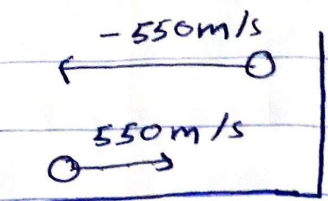 -550m/s
550m/s